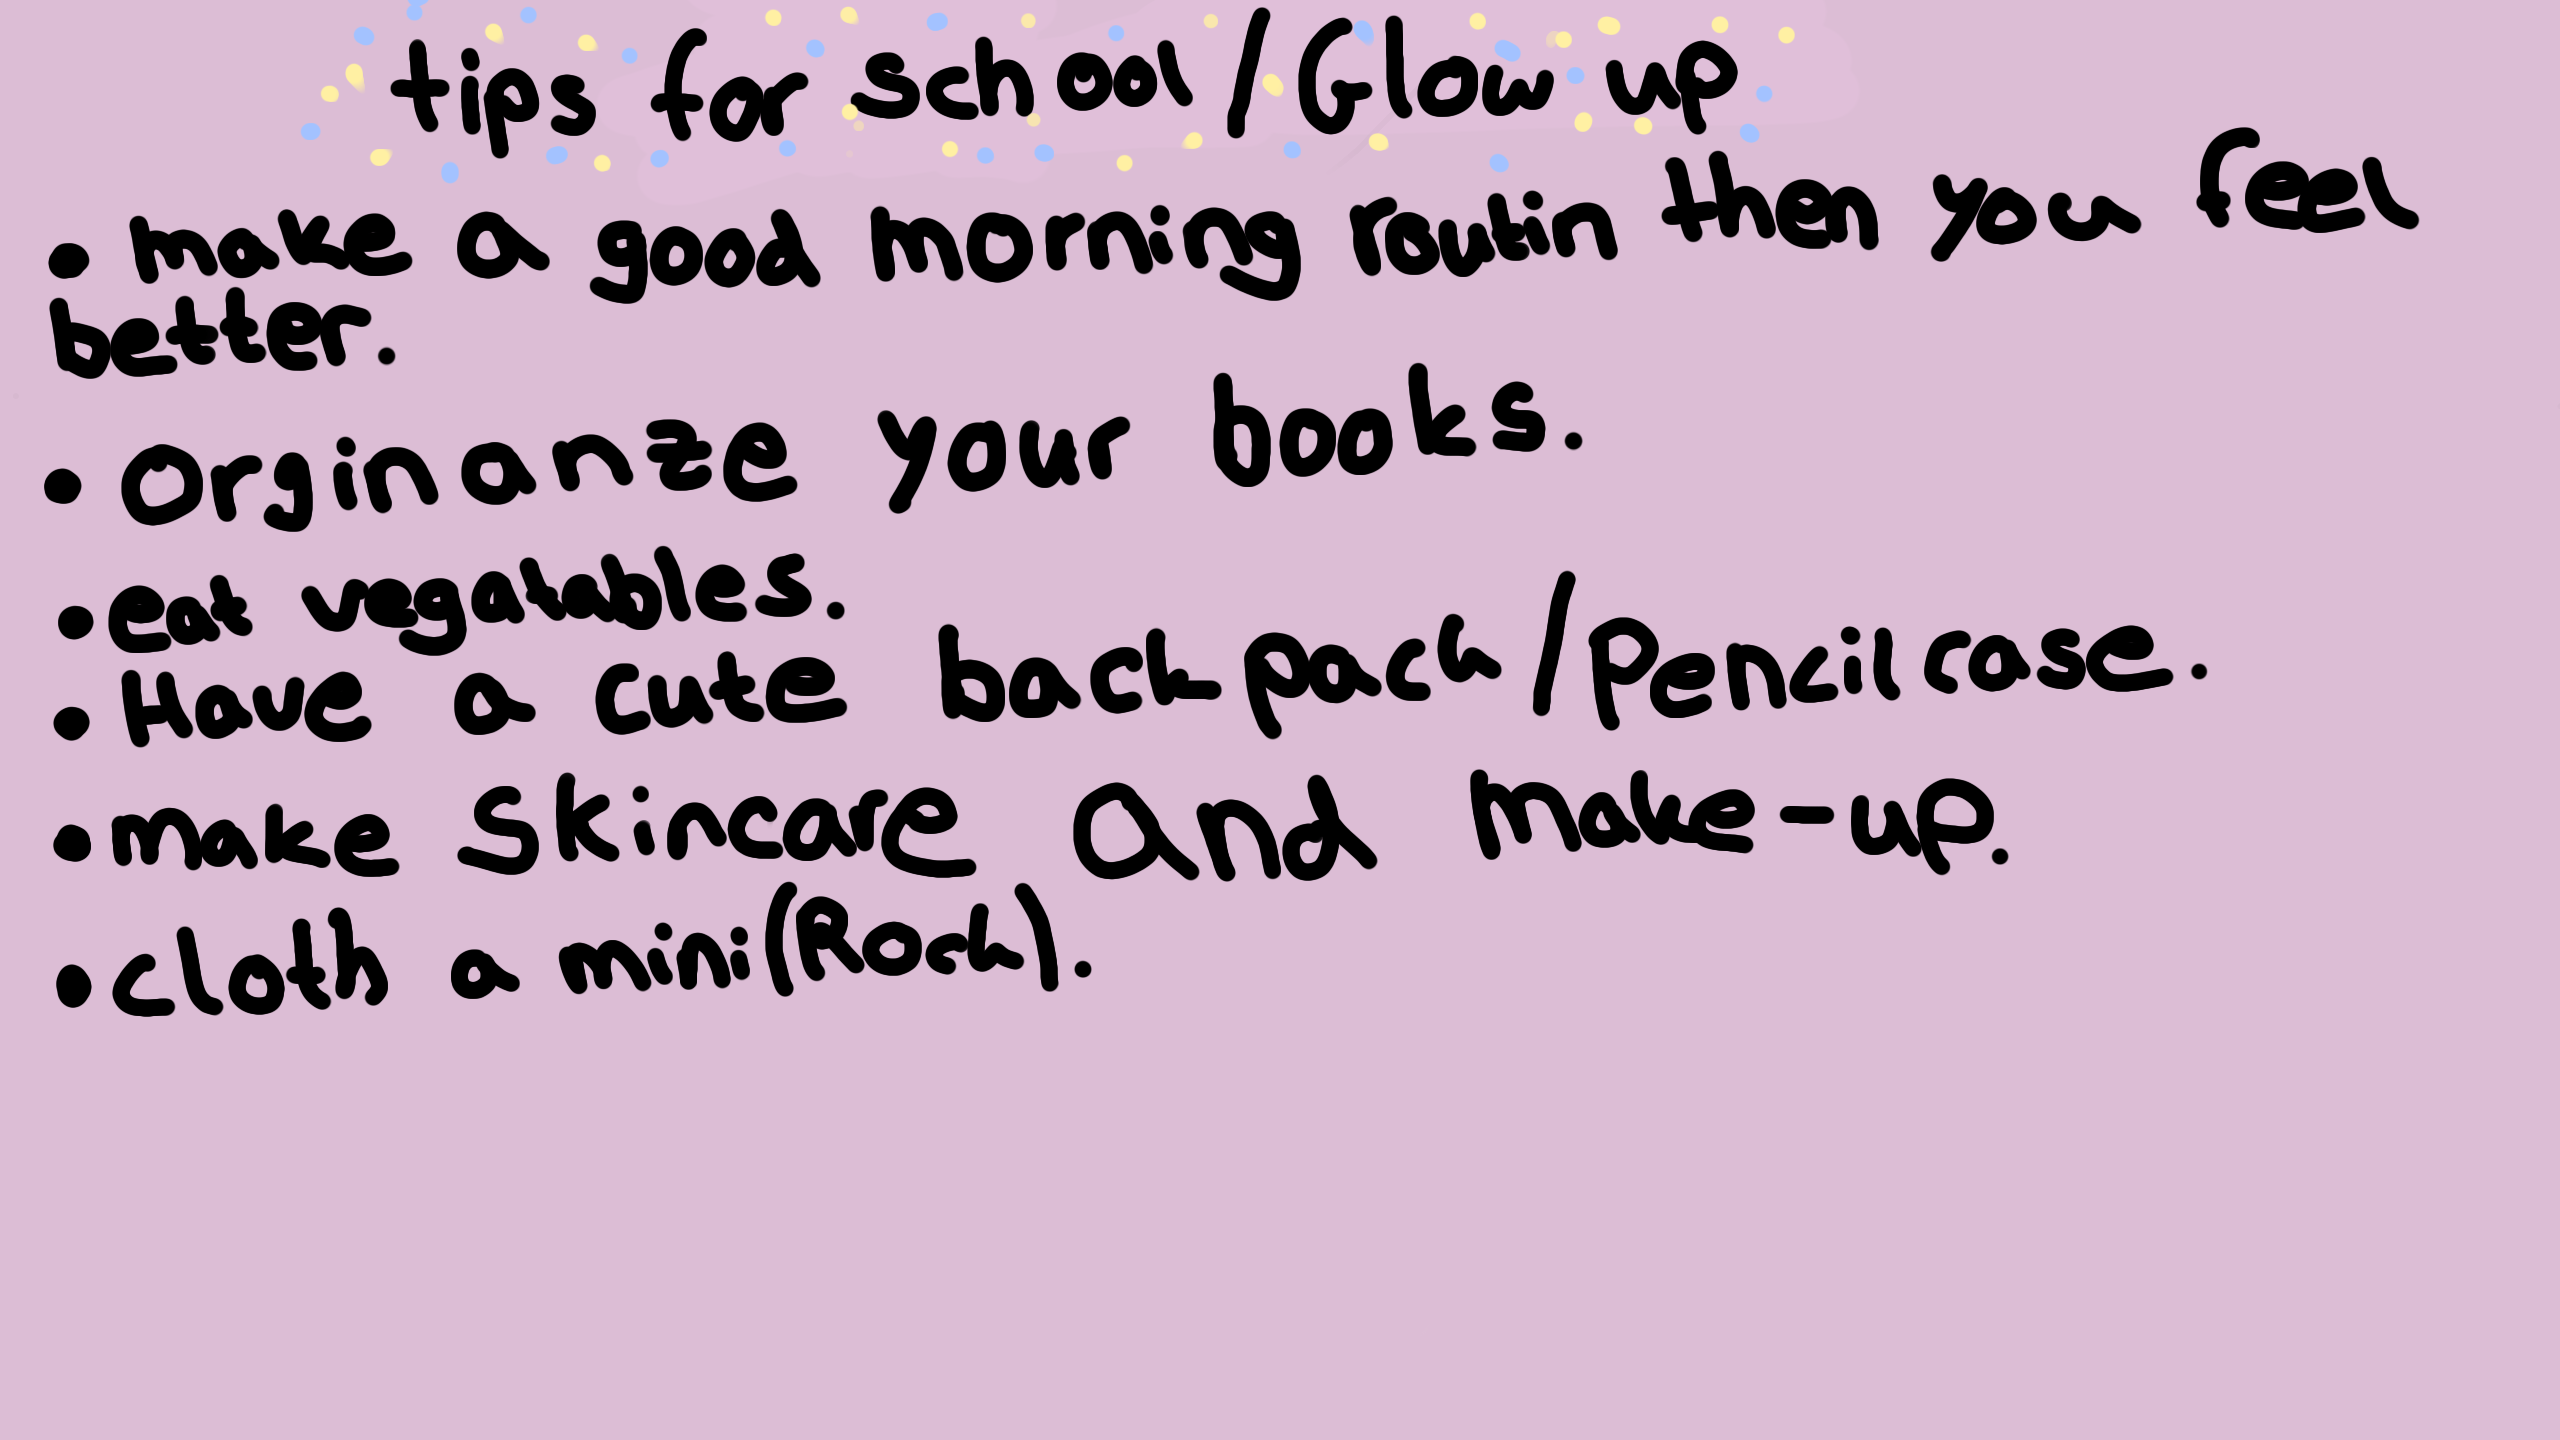 tips for school/Glow up
• make a good morning routin then you feel
better.
• Orginanze your books.
• eat vegatables.
• Have a cute backpack/Pencilcase.
• make skincare and make-up.
• cloth a mini(Rock).